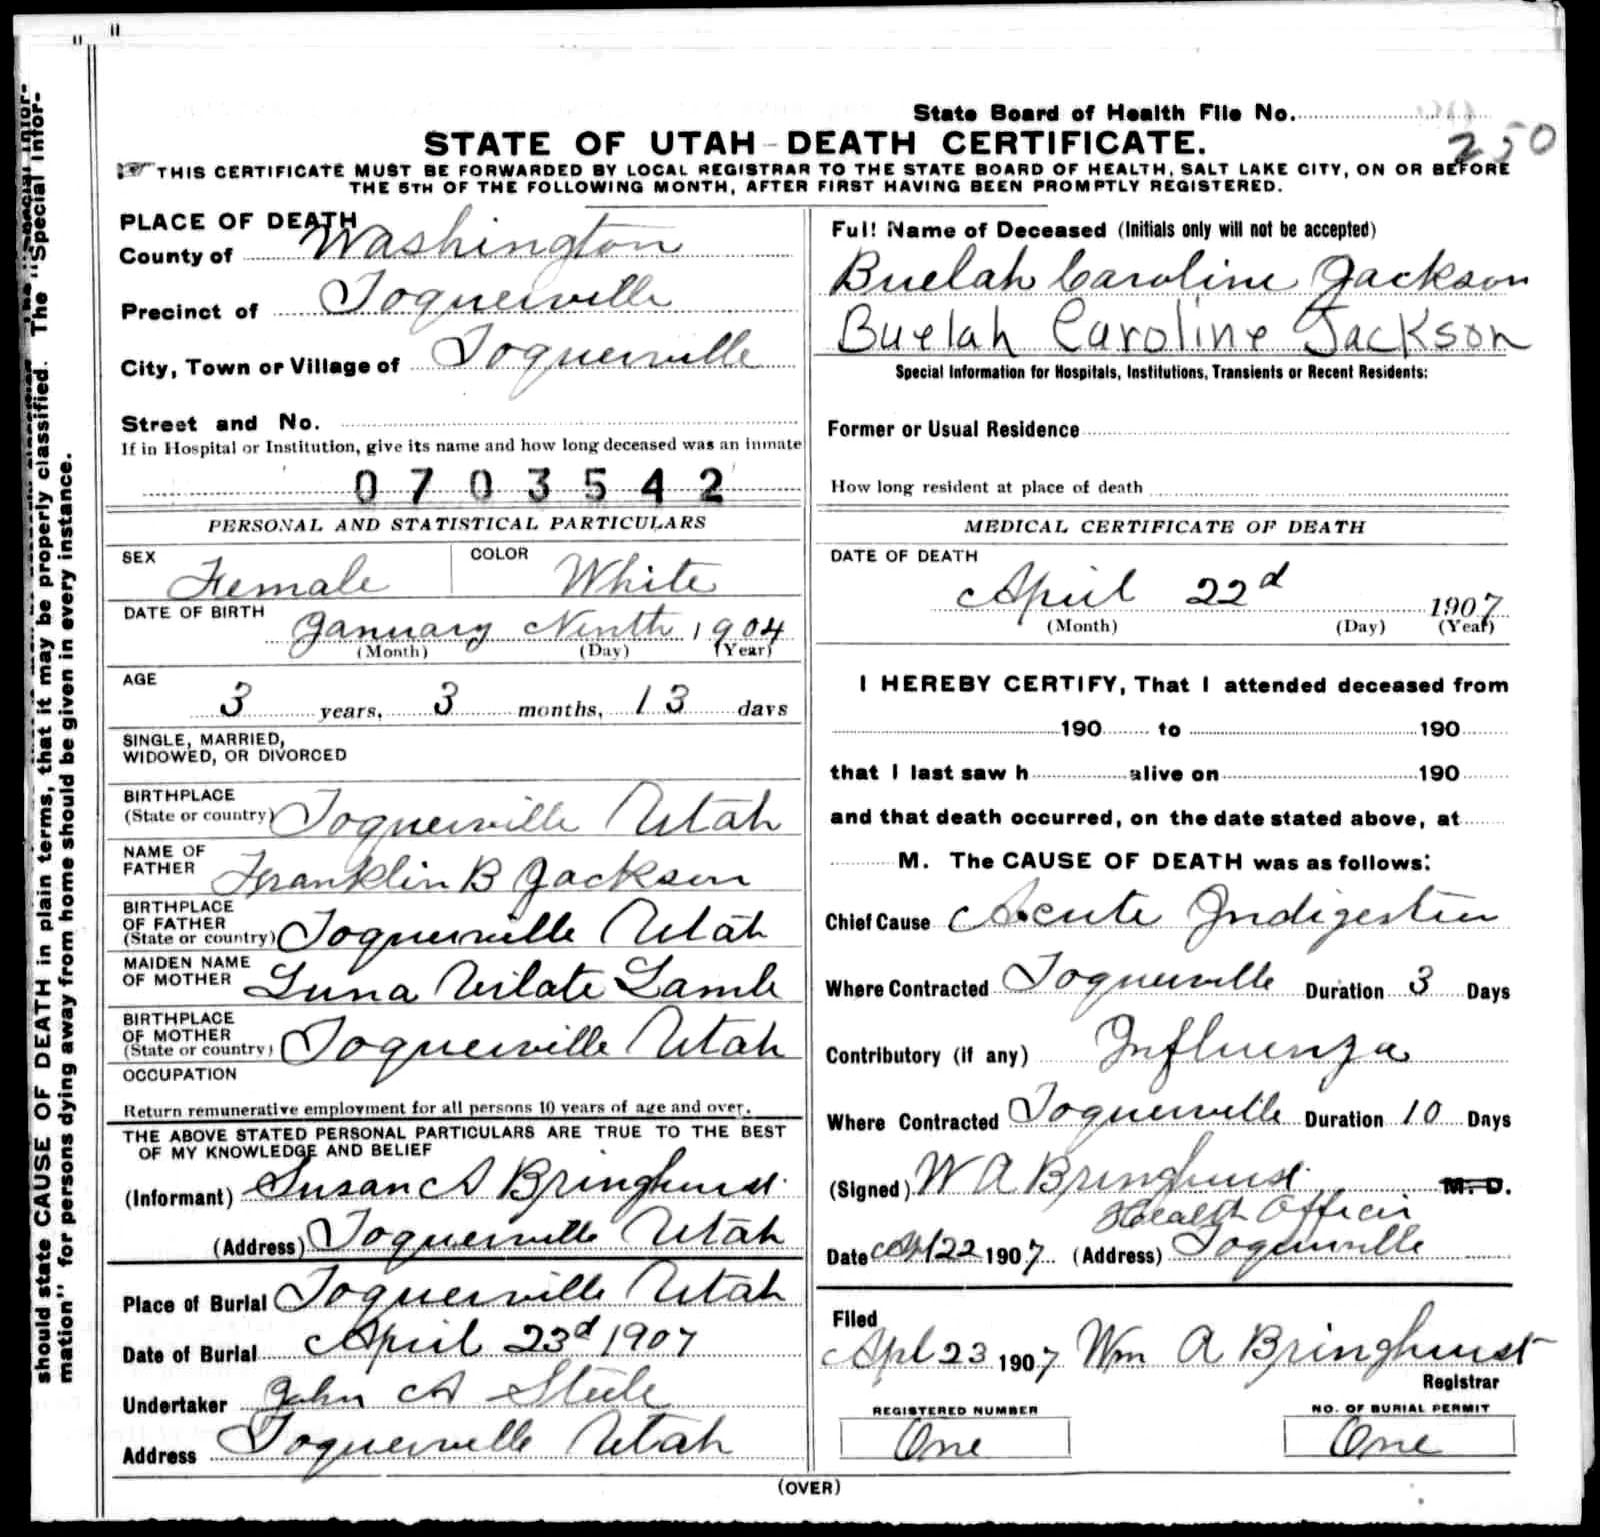 State Board of Health File No.
250
STATE OF UTAH - DEATH CERTIFICATE.
THIS CERTIFICATE MUST BE FORWARDED BY LOCAL REGISTRAR TO THE STATE BOARD OF HEALTH, SALT LAKE CITY, ON OR BEFORE
THE 5TH OF THE FOLLOWING MONTH, AFTER FIRST HAVING BEEN PROMPTLY REGISTERED.
should state CAUSE OF DEATH in plain terms, that it may be properly classified. The "Special Infor-
mation" for persons dying away from home should be given in every instance.
PLACE OF DEATH
County of Washington
Precinct of Toquerville
City, Town or Village of Toquerville
Street and No.
If in Hospital or Institution, give its name and how long deceased was an inmate
0703542
PERSONAL AND STATISTICAL PARTICULARS
SEX Female COLOR White
DATE OF BIRTH
January Ninth 1904
(Month) (Day) (Year)
AGE
3 years, 3 months, 13 days
SINGLE, MARRIED,
WIDOWED, OR DIVORCED
BIRTHPLACE
(State or country) Toquerville Utah
NAME OF
FATHER Franklin B Jackson
BIRTHPLACE
OF FATHER
(State or country) Toquerville Utah
MAIDEN NAME
OF MOTHER Luna Vilate Lamb
BIRTHPLACE
OF MOTHER
(State or country) Toquerville Utah
OCCUPATION
Return remunerative employment for all persons 10 years of age and over.
THE ABOVE STATED PERSONAL PARTICULARS ARE TRUE TO THE BEST
OF MY KNOWLEDGE AND BELIEF
(Informant) Susan A Bringhurst
(Address) Toquerville Utah
Place of Burial Toquerville Utah
Date of Burial April 23d 1907
Undertaker John A Steele
Address Toquerville Utah
Full Name of Deceased (Initials only will not be accepted)
Buelah Caroline Jackson
Buelah Caroline Jackson
Special Information for Hospitals, Institutions, Transients or Recent Residents:
Former or Usual Residence
How long resident at place of death
MEDICAL CERTIFICATE OF DEATH
DATE OF DEATH
April 22d 1907
(Month) (Day) (Year)
I HEREBY CERTIFY, That I attended deceased from
190 to 190
that I last saw h alive on 190
and that death occurred, on the date stated above, at
M. The CAUSE OF DEATH was as follows:
Chief Cause Acute Indigestion
Where Contracted Toquerville Duration 3 Days
Contributory (if any) Influenza
Where Contracted Toquerville Duration 10 Days
(Signed) W A Bringhurst M. D.
Health Officer
Date Apl 22 1907 (Address) Toquerville
Filed
Apl 23 1907 Wm A Bringhurst
Registrar
REGISTERED NUMBER
One
NO. OF BURIAL PERMIT
One
(OVER)